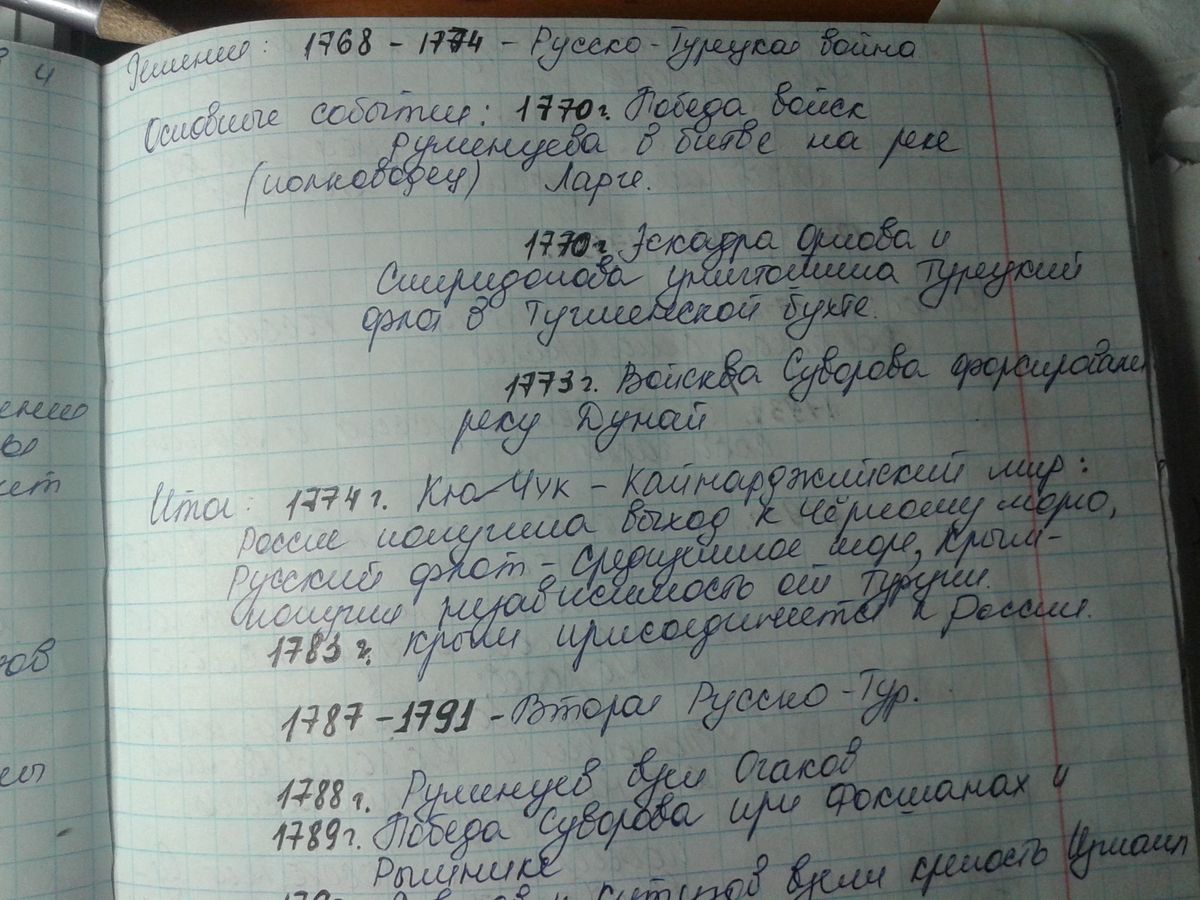 Решение: 1768 - 1774 - Русско-Турецкая война
Основные события: 1770г. Победа войск
Румянцева в битве на реке
(полководец) Ларге.
1770г. Эскадра Орлова и
Спиридонова уничтожила Турецкий
флот в Тугменской бухте.
1773г. Войска Суворова форсировали
реку Дунай
Итог: 1774г. Кю-Чук-Кайнарджийский мир:
Россия получила выход к Чёрному морю,
Русский флот - Средиземное море, Крым-
получил независимость от Турции.
1783 г. Крым присоединяется к России.
1787 - 1791 - Вторая Русско-Тур.
1788г. Румянцев взял Очаков
1789г. Победа Суворова при Фокшанах и
Рымнике
и Кутузов взяли крепость Измаил
4
ение
ы
ет
зов